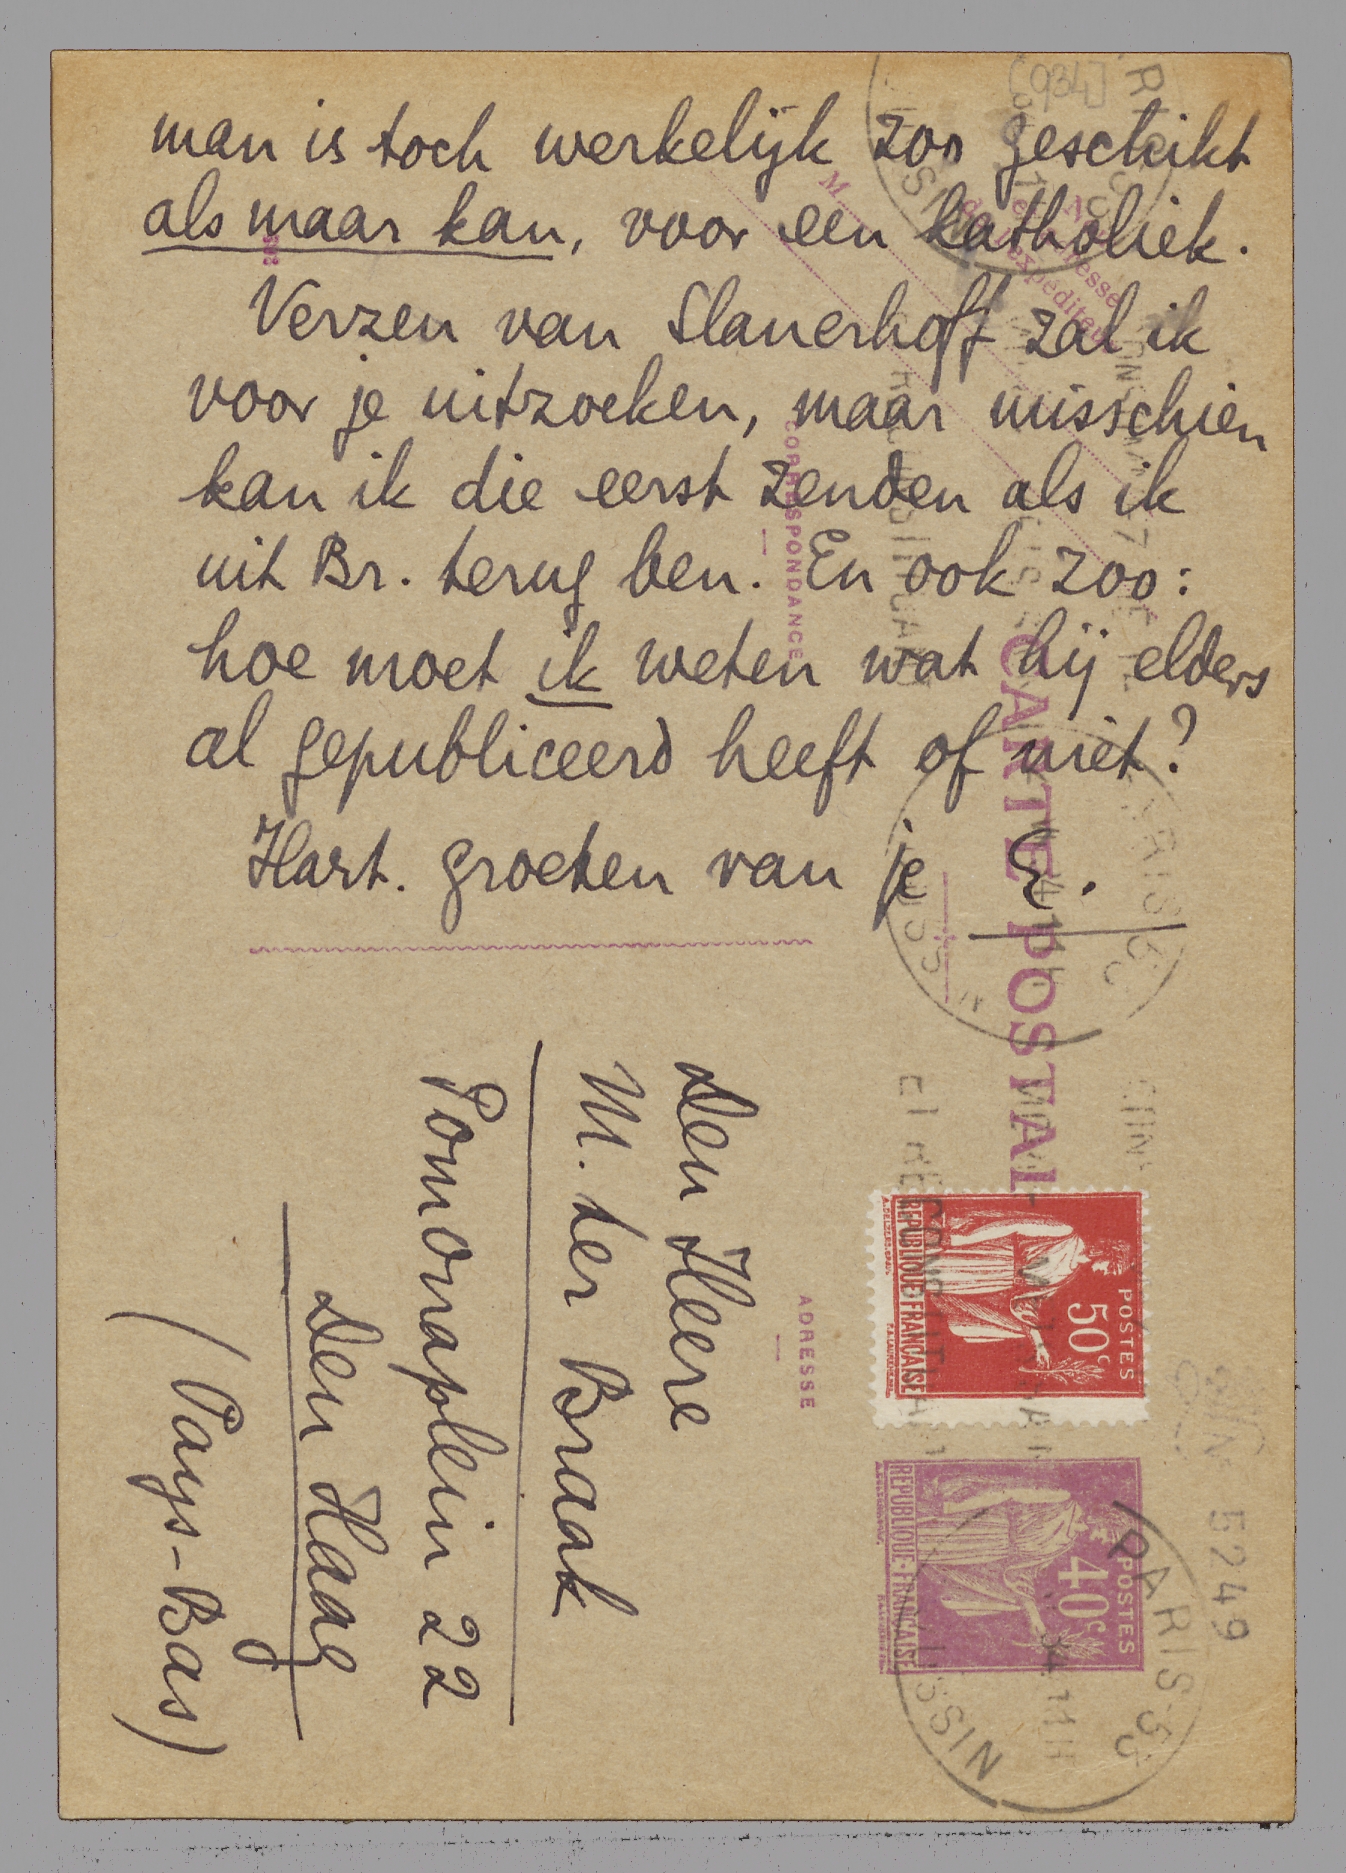 man is toch werkelijk zoo geschikt
als maar kan, voor een katholiek.
Verzen van Slauerhoff zal ik
voor je uitzoeken, maar misschien
kan ik die eerst zenden als ik
uit Br. terug ben. En ook zoo:
hoe moet ik weten wat hij elders
al gepubliceerd heeft of niet?
Hart. groeten van je E.
[934]
CORRESPONDANCE
CARTE POSTALE
ADRESSE
den Heere
M. ter Braak
Pomonaplein 22
Den Haag
(Pays-Bas)
POSTES
50c
REPUBLIQUE FRANÇAISE
POSTES
40c
REPUBLIQUE-FRANÇAISE
PARIS
5249